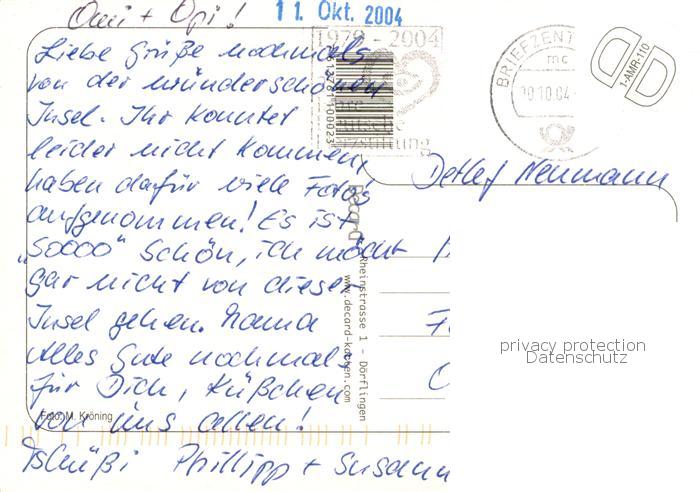 Omi + Opi!
11. Okt. 2004
Liebe Grüße nochmals
von der wunderschönen
Insel. Ihr konntet
leider nicht kommen,
haben dafür viele Foto's
aufgenommen! Es ist
„soooo" schön, ich möcht
gar nicht von dieser
Insel gehen. Mama
Alles Gute nochmal
für Dich, Küßchen
von uns allen!
Tschüßi Phillipp + Susann
Detlef Neumann
1979 - 2004
BRIEFZENT
mc
1-AMR-110
Decard
Rheinstrasse 1 - Dörflingen
www.decard-karten.com
Foto: M. Kröning
privacy protection
Datenschutz